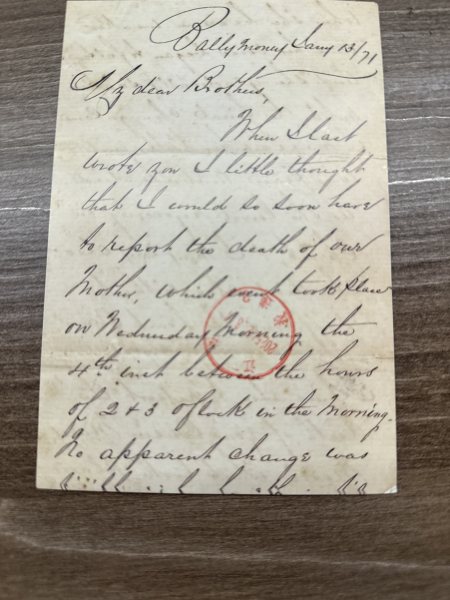 Ballymoney Jany 13/71
My dear Brothers,
When I last
wrote you I little thought
that I would so soon have
to report the death of our
Mother, which event took place
on Wednesday Morning the
4th inst between the hours
of 2 & 3 oClock in the Morning.
No apparent change was